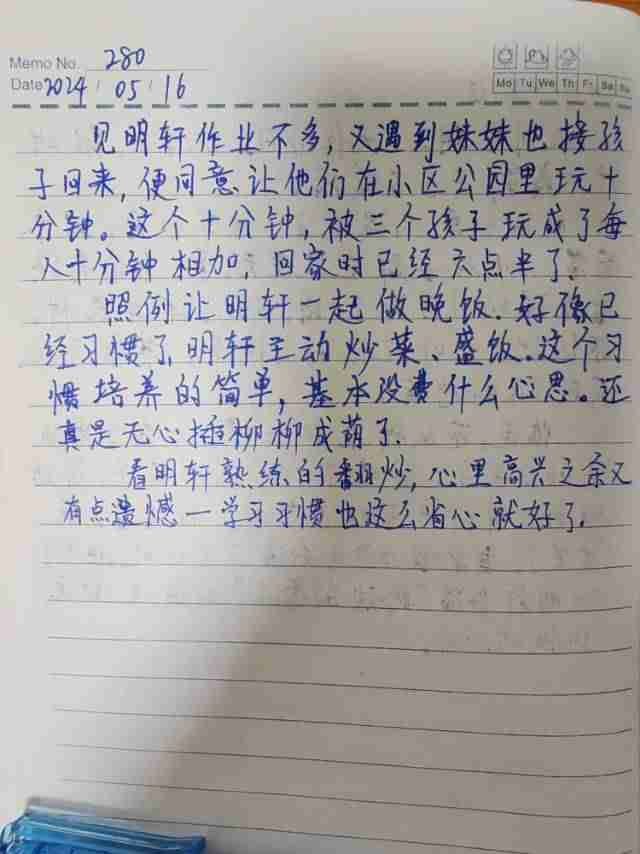 Memo No. 280
Mo Tu We Th Fr Sa Su
Date 2024 / 05 / 16
见明轩作业不多,又遇到妹妹也接孩
子回来,便同意让他们在小区公园里玩十
分钟。这个十分钟,被三个孩子玩成了每
人十分钟相加,回家时已经六点半了.
照例让明轩一起做晚饭.好像已
经习惯了,明轩主动炒菜、盛饭.这个习
惯培养的简单,基本没费什么心思。还
真是无心插柳柳成荫了.
看明轩熟练的翻炒,心里高兴之余又
有点遗憾—学习习惯也这么省心就好了.